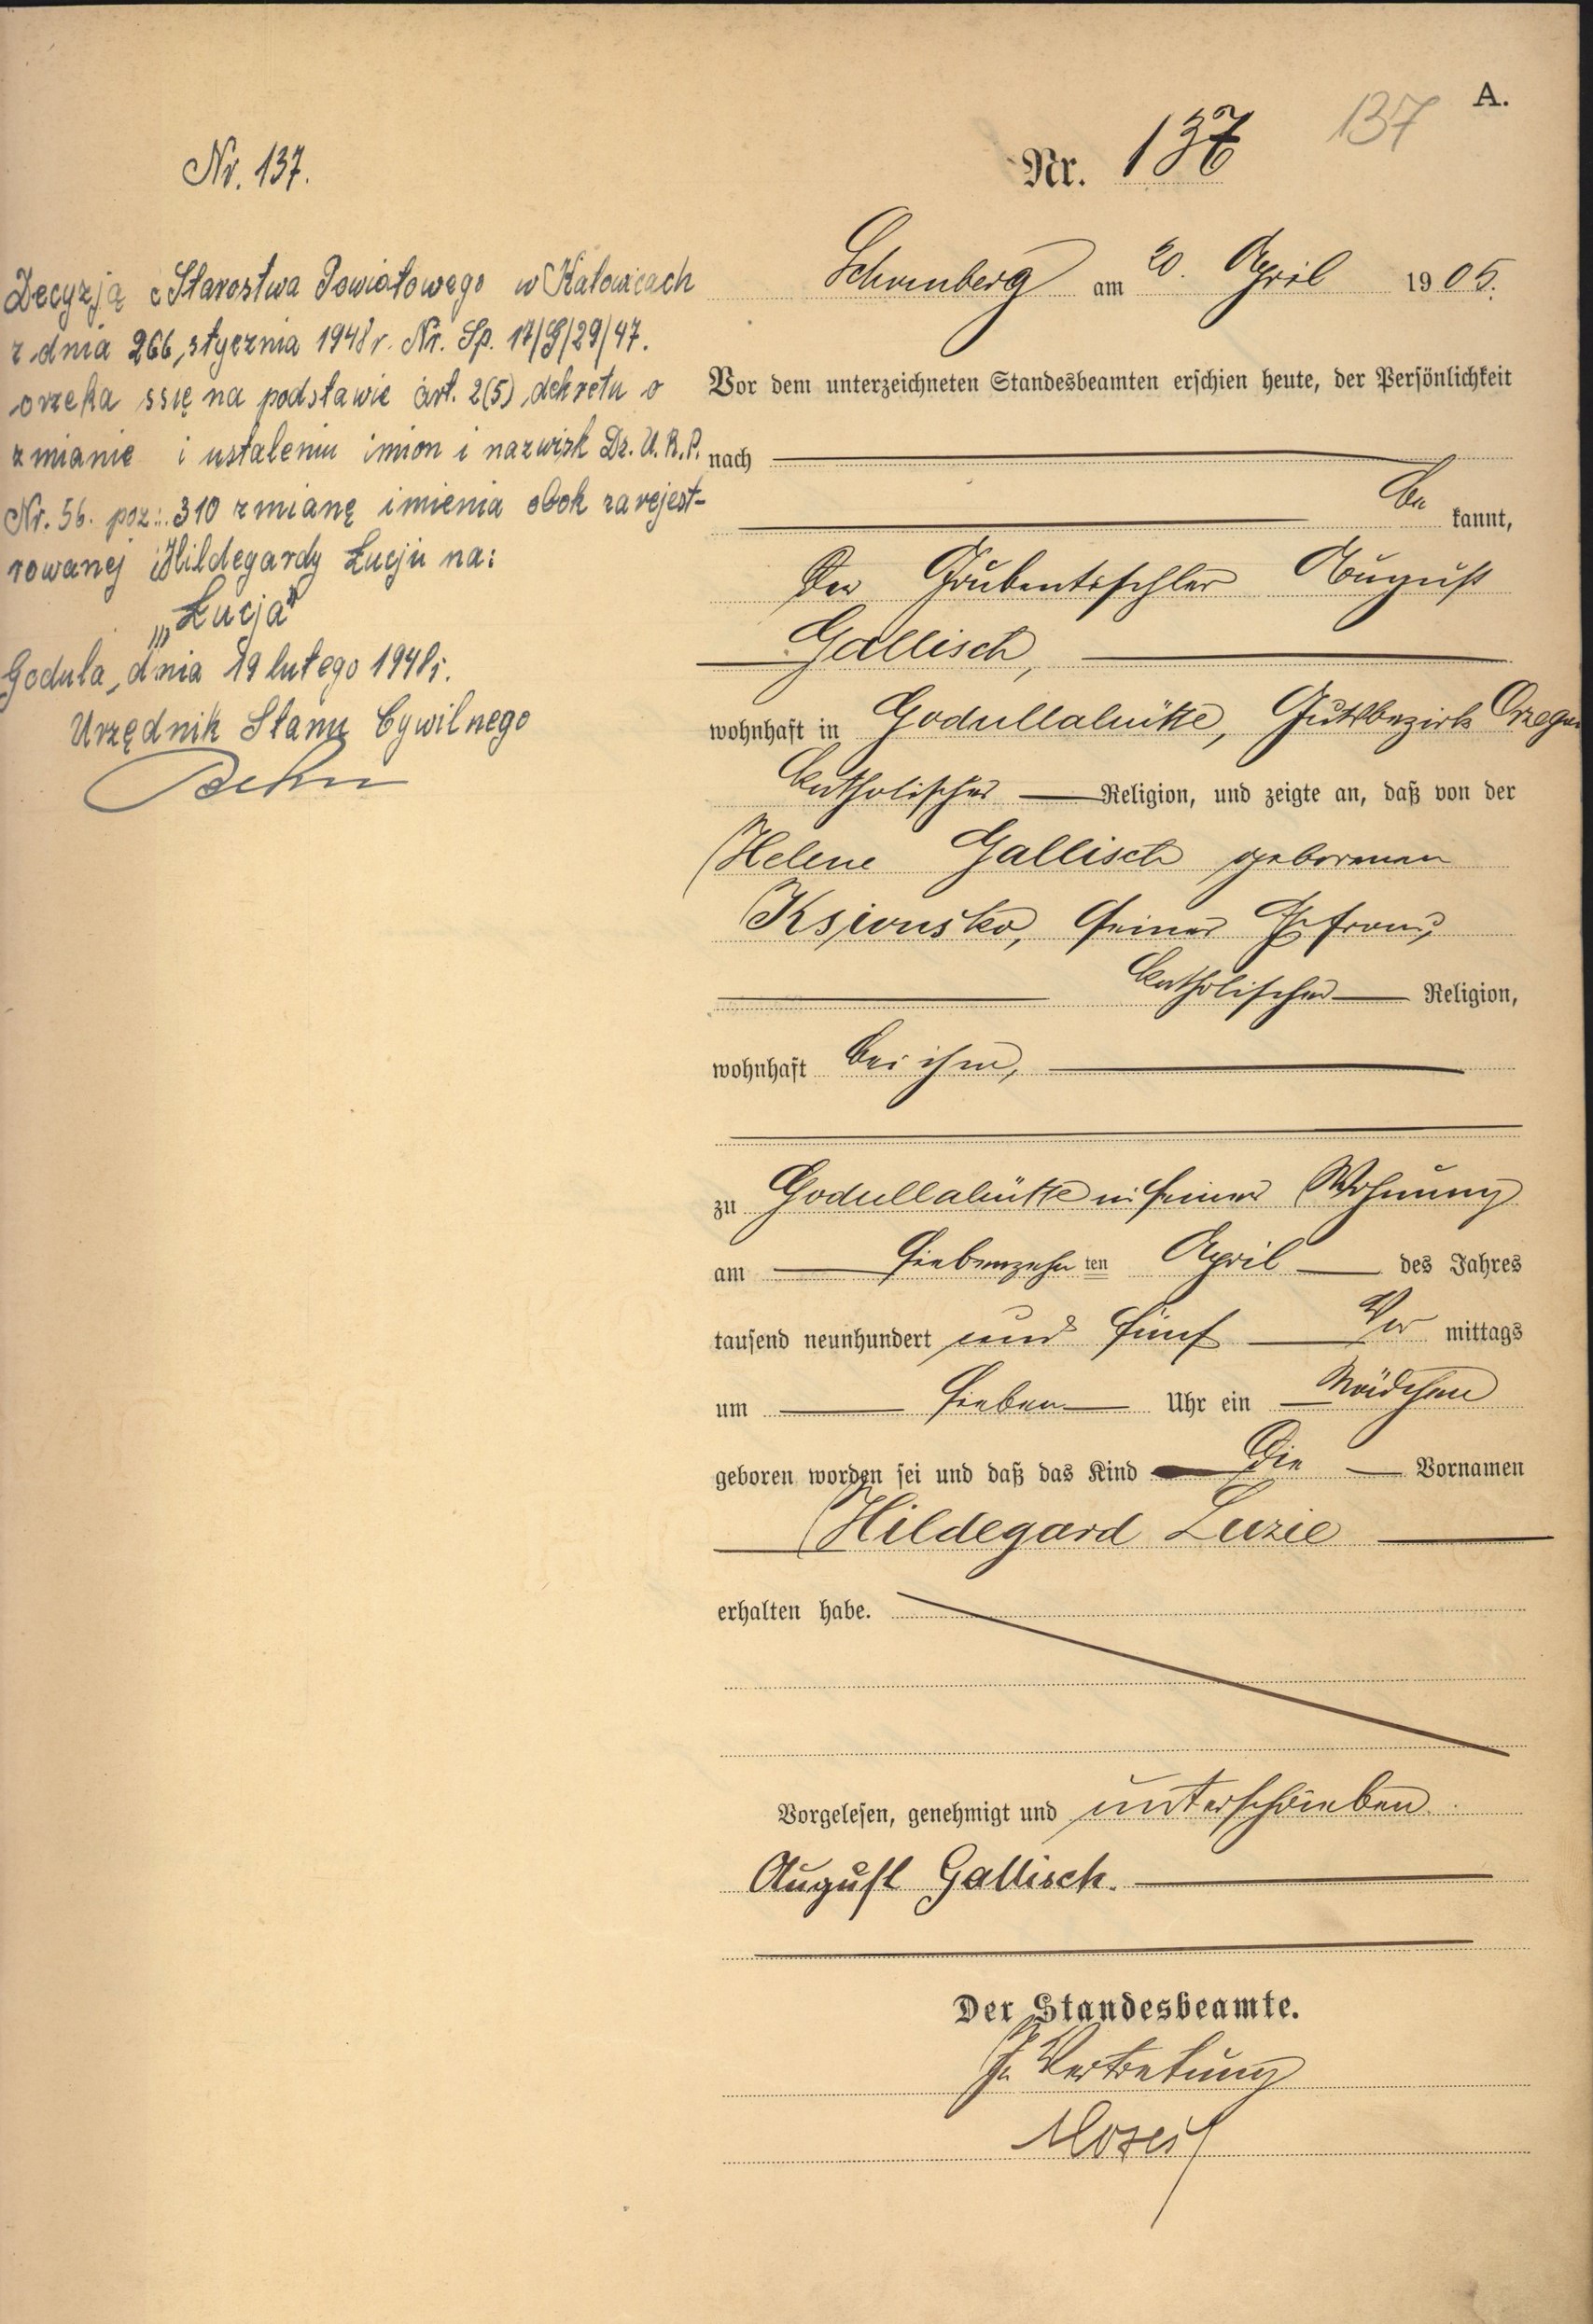 A.
137
Nr. 137.
Nr. 137
Decyzją Starostwa Powiatowego w Katowicach
z dnia 266, stycznia 1948 r. Nr. Sp. 17/G/29/47.
orzeka ssię na podstawie art. 2(5) dekretu o
zmianie i ustaleniu imion i nazwisk Dz. U. R. P.
Nr. 56. poz.: 310 zmianę imienia obok zarejest-
rowanej Hildegardy Łucju na:
„Łucja"
Godula, dnia 19 lutego 1948 r.
Urzędnik Stanu Cywilnego
Schomberg am 20. April 1905.
Vor dem unterzeichneten Standesbeamten erschien heute, der Persönlichkeit
nach
be kannt,
der Grubentischler August
Gallisch,
wohnhaft in Godullahütte, Gutsbezirk Orzegow
katholischer Religion, und zeigte an, daß von der
Helene Gallisch geborenen
Ksionsko, seiner Ehefrau,
katholischer Religion,
wohnhaft bei ihm,
zu Godullahütte in seiner Wohnung
am siebenzehn ten April des Jahres
tausend neunhundert und fünf Vor mittags
um sieben Uhr ein Mädchen
geboren worden sei und daß das Kind die Vornamen
Hildegard Luzie
erhalten habe.
Vorgelesen, genehmigt und unterschrieben
August Gallisch.
Der Standesbeamte.
In Vertretung
Moses